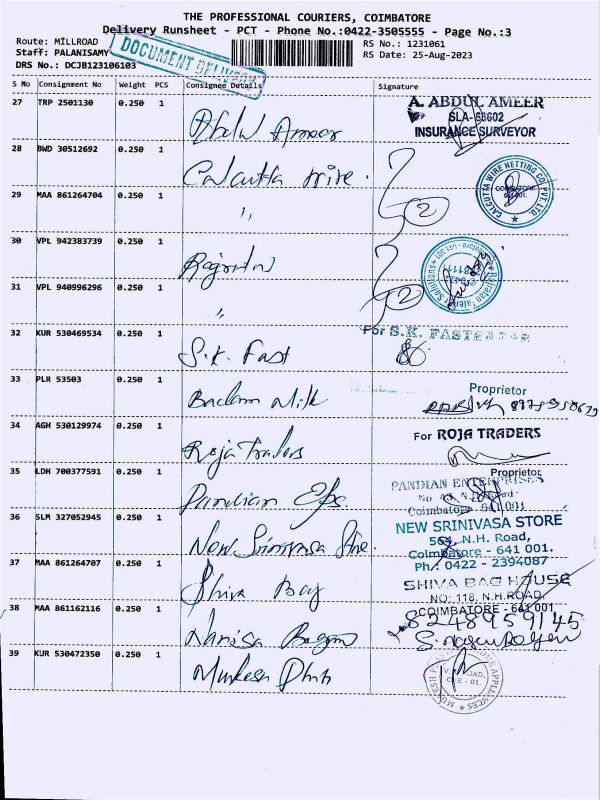 THE PROFESSIONAL COURIERS, COIMBATORE
Delivery Runsheet - PCT - Phone No.:0422-3505555 - Page No.:3
Route: MILLROAD RS No.: 1231061
Staff: PALANISAMY RS Date: 25-Aug-2023
DRS No.: DCJB123106103
DOCUMENT DELIVERY
S No Consignment No Weight PCS Consignee Details Signature
27 TRP 2501130 0.250 1 Abdul Ameer
A. ABDUL AMEER
SLA-68602
INSURANCE SURVEYOR
28 BWD 30512692 0.250 1 Calcutta wire.
CALCUTTA WIRE NETTING CO. PVT. LTD.
29 MAA 861264704 0.250 1 "
2
30 VPL 942383739 0.250 1
31 VPL 940996296 0.250 1 "
2
32 KUR 530469534 0.250 1 S.K. Fast
For S.K. FASTENERS
33 PLR 53503 0.250 1 Badam Milk
Proprietor
34 AGH 530129974 0.250 1 Roja Traders
For ROJA TRADERS
Proprietor
35 LDH 700377591 0.250 1 Pandian Eps
PANDIAN ENTERPRISES
Coimbatore 641 001
36 SLM 327052945 0.250 1 New Srinivasa Store.
NEW SRINIVASA STORE
564, N.H. Road,
Coimbatore - 641 001.
Ph: 0422 - 2394087
37 MAA 861264707 0.250 1 Shiva Bag
SHIVA BAG HOUSE
NO: 118, N.H.ROAD,
COIMBATORE - 641 001
38 MAA 861162116 0.250 1
8248959145
39 KUR 530472350 0.250 1 Mukesh